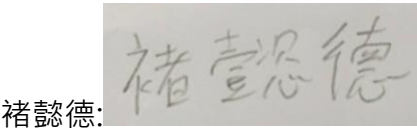 褚懿德:褚懿德